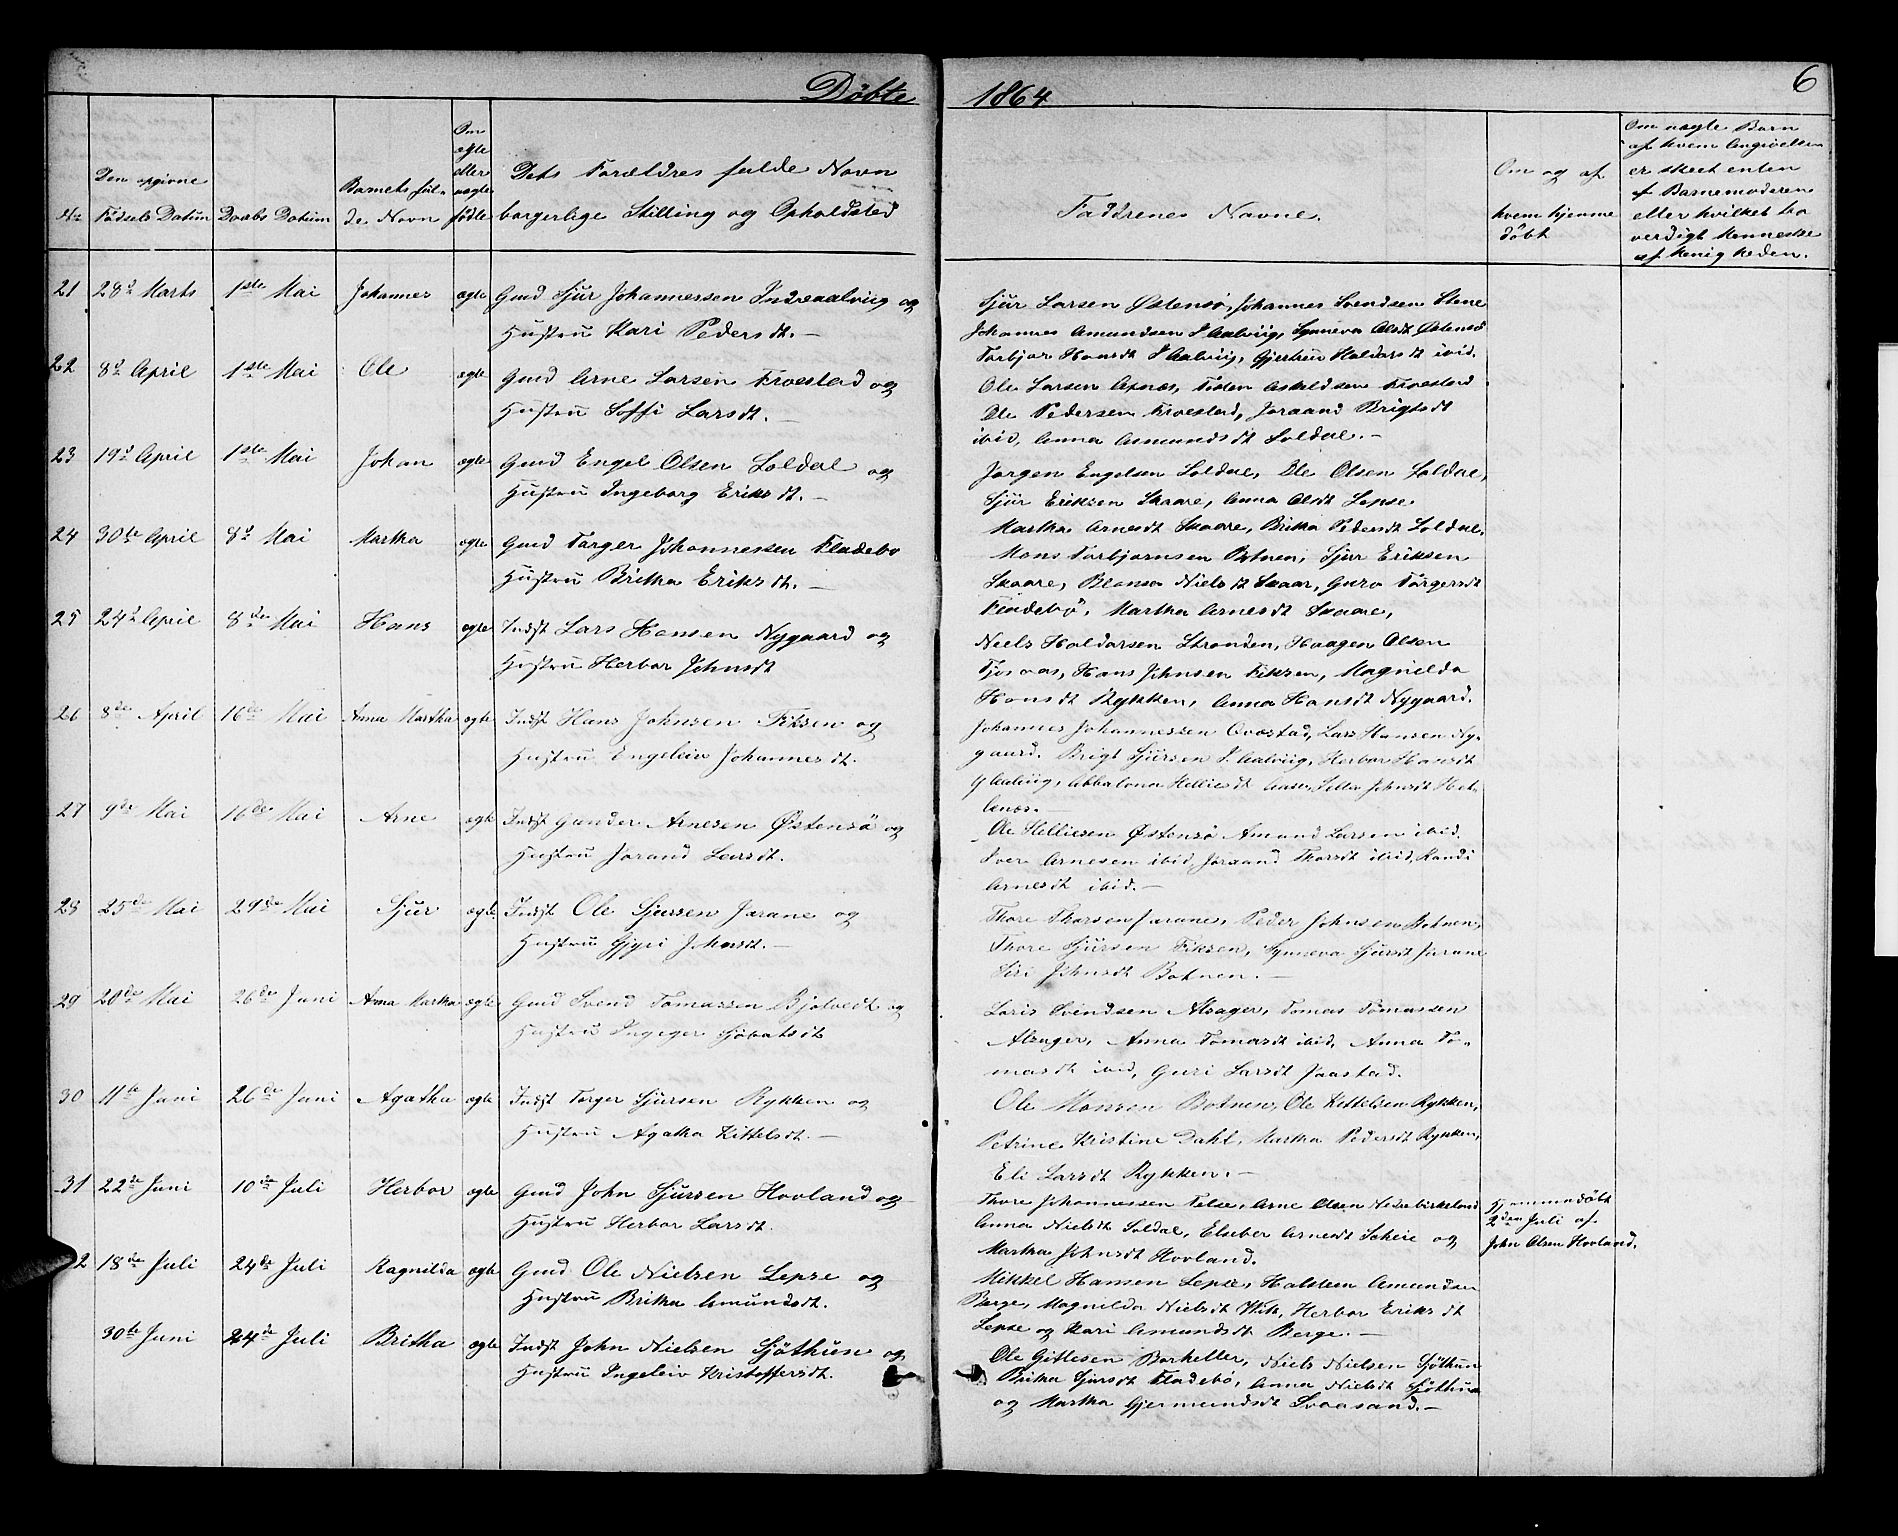 Døbte 1864 6
No
Den opgivne
Fødsels Datum
Daabs Datum
Barnets ful-
de Navn
Om
ægte
eller
uægte
fødte
Dets Forældres fulde Navn
borgerlige Stilling og Opholdsted
Faddrenes Navne.
Om og af
hvem hjemme
døbt
Om uægte Barn
af hvem Angivelsen
er skeet enten
af Barnemoderen
eller hvilket tro
verdigt Menneske
af Menigheden.
21 28d Marts 1ste Mai Johannes ægte Gmd Sjur Johannessen Indreaalvig og
Hustru Kari Pedersdt. —
Sjur Larsen Østensø, Johannes Svendsen Steine
Johannes Amundsen I Aalvig, Synneva Olsdt Østensø
Torbjør Hansdt I Aalvig, Gjertrud Haldorsdt ibid.
22 8d April 1ste Mai Ole ægte Gmd Arne Larsen Froestad og
Hustru Soffi Larsdt. —
Ole Larsen Axnes, Tosten Askeldsen Froestad
Ole Pedersen Froestad, Joraand Brigtsdt
ibid, Anna Asmundsdt Soldal. —
23 19d April 1ste Mai Johan ægte Gmd Engel Olsen Soldal og
Hustru Ingeborg Eriksdt. —
Jørgen Engelsen Soldal, Ole Olsen Soldal,
Sjur Eriksen Skaare, Anna Olsdt Lepse
Martha Arnesdt Skaare, Britha Pedersdt Soldal.
24 30te April 8d Mai Martha ægte Gmd Torger Johannessen Fladebø
Hustru Britha Eriksdt. —
Mons Torbjørnsen Botnen, Sjur Eriksen
Skaare, Blansa Nielsdt Skaar, Guro Torgersdt
Fladebø, Martha Arnesdt Skaare,
25 24d April 8de Mai Hans ægte Indst Lars Hansen Nygaard og
Hustru Herbor Johnsdt
Niels Haldorsen Stranden, Haagen Olsen
Tjosaas, Hans Johnsen Fiksen, Magnilda
Hansdt Rykken, Anna Hansdt Nygaard.
26 8de April 16de Mai Anna Martha ægte Indst Hans Johnsen Fiksen og
Hustru Engeleiv Johannesdt.
Johannes Johannessen Ovestad, Lars Hansen Ny-
gaard. Brigt Sjursen I Aalvig, Herbor Hansdt
Y Aalvig, Abbalona Helliesdt Aase, Silla Johnsdt Het-
lenes. —
27 9de Mai 16de Mai Arne ægte Indst Gunder Arnesen Østensø og
Hustru Jorand Larsdt.
Ole Helliesen Østensø Amund Larsen ibid.
Iver Arnesen ibid, Joraand Thorsdt ibid, Randi
Arnesdt ibid. —
28 25de Mai 29de Mai Sjur ægte Indst Ole Sjursen Jarane og
Hustru Gjyri Johnsdt. —
Thore Thorsen Jarane, Peder Johnsen Botnen,
Thore Sjursen Fiksen, Synneva Sjursdt Jarane
Siri Johnsdt Botnen. —
29 20de Mai 26de Juni Anna Martha ægte Gmd Svend Tomassen Bjølvedt og
Hustru Ingeger Sjøbatsdt
Laris Svendsen Alsager, Tomas Tomassen
Alsager, Anna Tomasdt ibid, Anna To-
masdt ibid, Guri Larsdt Jaastad.
30 11te Juni 26de Juni Agatha ægte Indst Torger Sjursen Rykken og
Hustru Agatha Kittelsdt. —
Ole Monsen Botnen, Ole Kittelsen Rykken,
Petrine Kristine Dahl, Martha Pedersdt Rykken,
Eli Larsdt Rykken. —
31 22de Juni 10de Juli Herbor ægte Gmd John Sjursen Hovland og
Hustru Herbor Larsdt.
Thore Johannessen Telse, Arne Olsen Nedrebirkeland
Anna Nielsdt Soldal, Elseber Arnesdt Scheie og
Martha Johnsdt Hovland.
Hjemmedøbt
2den Juli af
John Olsen Hovland.
2 18de Juli 24de Juli Ragnilda ægte Gmd Ole Nielsen Lepse og
Hustru Britha Amundsdt.
Mikkel Hansen Lepse, Halsten Amundsen
Berge, Magnilda Nielsdt Vik, Herbor Eriksdt
Lepse og Kari Amundsdt Berge. —
30te Juni 24de Juli Britha ægte Indst John Nielsen Sjøthun og
Hustru Ingeleiv Kristoffersdt.
Ole Gitlesen Barheller, Niels Nielsen Sjøthun
Britha Sjursdt Fladebø, Anna Nielsdt Sjøthun
og Martha Gjermundsdt Svaasand. —